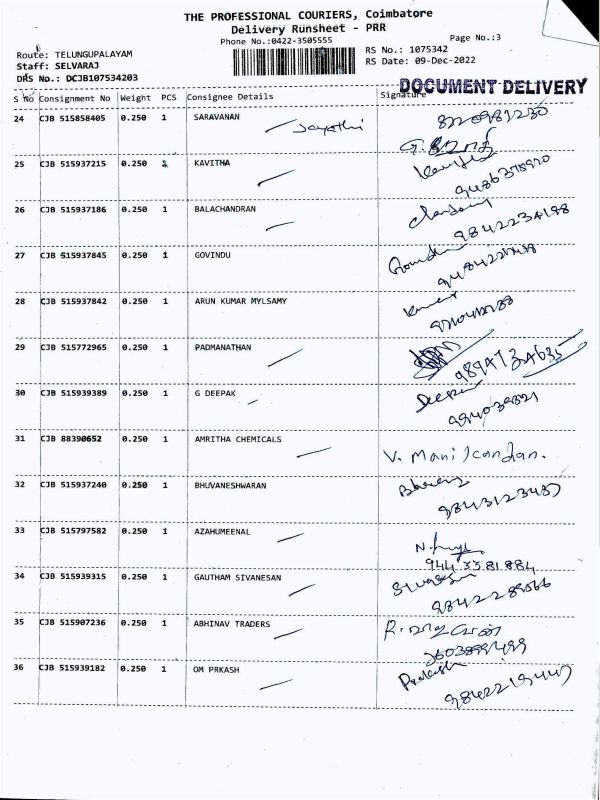 THE PROFESSIONAL COURIERS, Coimbatore
Delivery Runsheet - PRR
Phone No.:0422-3505555
Page No.:3
Route: TELUNGUPALAYAM
RS No.: 1075342
Staff: SELVARAJ
RS Date: 09-Dec-2022
DRS No.: DCJB107534203
DOCUMENT DELIVERY
S No Consignment No Weight PCS Consignee Details Signature
24 CJB 515858405 0.250 1 SARAVANAN
Jayothi
25 CJB 515937215 0.250 1 KAVITHA
26 CJB 515937186 0.250 1 BALACHANDRAN
27 CJB 515937845 0.250 1 GOVINDU
28 CJB 515937842 0.250 1 ARUN KUMAR MYLSAMY
29 CJB 515772965 0.250 1 PADMANATHAN
30 CJB 515939389 0.250 1 G DEEPAK
Deepak
31 CJB 88390652 0.250 1 AMRITHA CHEMICALS
V. Manikandan.
32 CJB 515937240 0.250 1 BHUVANESHWARAN
9843123487
33 CJB 515797582 0.250 1 AZAHUMEENAL
9443381884
34 CJB 515939315 0.250 1 GAUTHAM SIVANESAN
35 CJB 515907236 0.250 1 ABHINAV TRADERS
36 CJB 515939182 0.250 1 OM PRKASH
Prakash